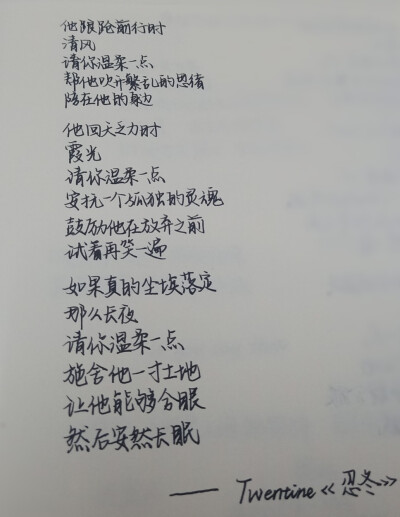 他踉跄前行时
清风
请你温柔一点
帮他吹开繁乱的思绪
陪在他的身边
他回天乏力时
霞光
请你温柔一点
安抚一个孤独的灵魂
鼓励他在放弃之前
试着再笑一遍
如果真的尘埃落定
那么长夜
请你温柔一点
施舍他一寸土地
让他能够合眼
然后安然长眠
—— Twentine《忍冬》